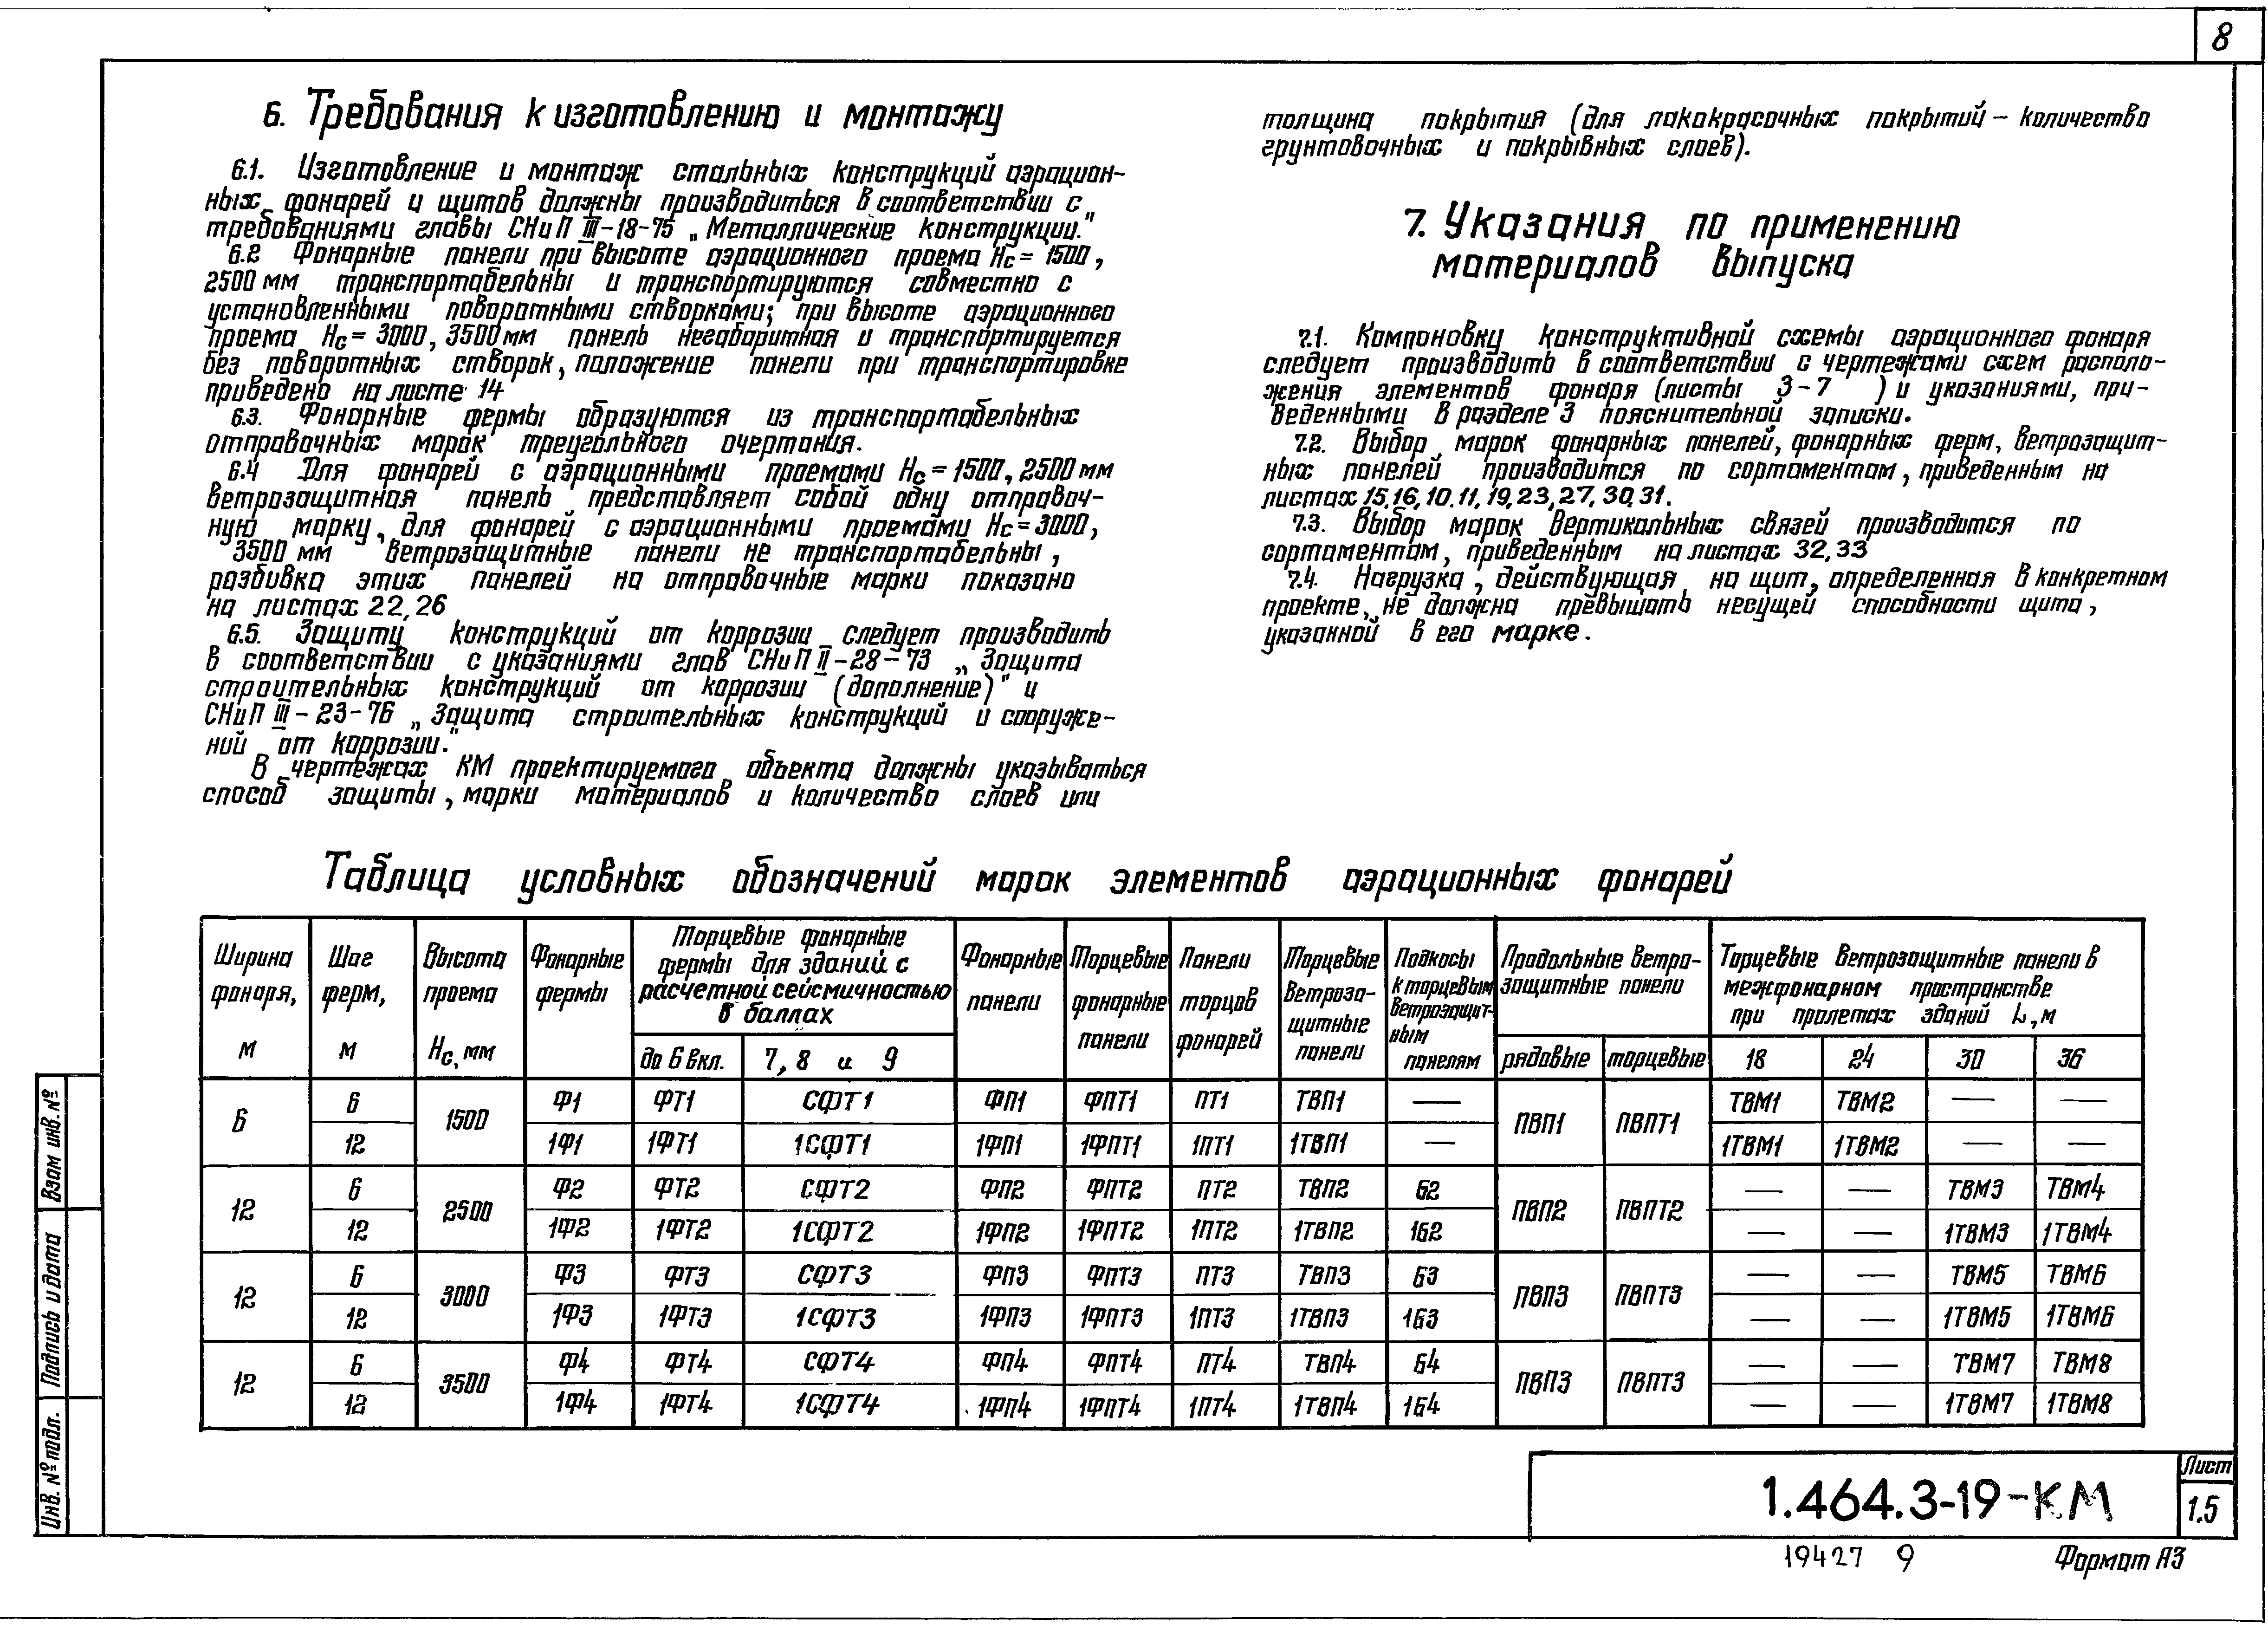 8
6. Требования к изготовлению и монтажу
6.1. Изготовление и монтаж стальных конструкций аэрацион-
ных фонарей и щитов должны производиться в соответствии с
требованиями главы СНиП III-18-75 „Металлические конструкции."
6.2 Фонарные панели при высоте аэрационного проема Hс = 1500,
2500 мм транспортабельны и транспортируются совместно с
установленными поворотными створками; при высоте аэрационного
проема Hс = 3000, 3500 мм панель негабаритная и транспортируется
без поворотных створок, положение панели при транспортировке
приведено на листе 14
6.3. Фонарные фермы образуются из транспортабельных
отправочных марок треугольного очертания.
6.4 Для фонарей с аэрационными проемами Hс = 1500, 2500 мм
ветрозащитная панель представляет собой одну отправоч-
ную марку, для фонарей с аэрационными проемами Hс = 3000,
3500 мм ветрозащитные панели не транспортабельны,
разбивка этих панелей на отправочные марки показано
на листах 22, 26
6.5. Защиту конструкций от коррозии следует производить
в соответствии с указаниями глав СНиП II-28-73 „Защита
строительных конструкций от коррозии (дополнение)" и
СНиП III-23-76 „Защита строительных конструкций и сооруже-
ний от коррозии."
В чертежах КМ проектируемого объекта должны указываться
способ защиты, марки материалов и количество слоев или
толщина покрытия (для лакокрасочных покрытий – количество
грунтовочных и покрывных слоев).
7. Указания по применению
материалов выпуска
7.1. Компоновку конструктивной схемы аэрационного фонаря
следует производить в соответствии с чертежами схем располо-
жения элементов фонаря (листы 3-7 ) и указаниями, при-
веденными в разделе 3 пояснительной записки.
7.2. Выбор марок фонарных панелей, фонарных ферм, ветрозащит-
ных панелей производится по сортаментам, приведенным на
листах 15, 16, 10. 11, 19, 23, 27, 30, 31.
7.3. Выбор марок вертикальных связей производится по
сортаментам, приведенным на листах 32, 33
7.4. Нагрузка, действующая на щит, определенная в конкретном
проекте, не должна превышать несущей способности щита,
указанной в его марке.
Таблица условных обозначений марок элементов аэрационных фонарей
Ширина фонаря, м | Шаг ферм, м | Высота проема Hс, мм | Фонарные фермы | Торцевые фонарные фермы для зданий с расчетной сейсмичностью в баллах | Фонарные панели | Торцевые фонарные панели | Панели торцов фонарей | Торцевые ветрозащитные панели | Подкосы к торцевым ветрозащитным панелям | Продольные ветрозащитные панели | Торцевые ветрозащитные панели в межфонарном пространстве при пролетах зданий L, м
до 6 вкл. | 7, 8 и 9 | рядовые | торцевые | 18 | 24 | 30 | 36
6 | 6 | 1500 | Ф1 | ФТ1 | СФТ1 | ФП1 | ФПТ1 | ПТ1 | ТВП1 | — | ПВП1 | ПВПТ1 | ТВМ1 | ТВМ2 | — | —
12 | 1Ф1 | 1ФТ1 | 1СФТ1 | 1ФП1 | 1ФПТ1 | 1ПТ1 | 1ТВП1 | — | 1ТВМ1 | 1ТВМ2 | — | —
12 | 6 | 2500 | Ф2 | ФТ2 | СФТ2 | ФП2 | ФПТ2 | ПТ2 | ТВП2 | Б2 | ПВП2 | ПВПТ2 | — | — | ТВМ3 | ТВМ4
12 | 1Ф2 | 1ФТ2 | 1СФТ2 | 1ФП2 | 1ФПТ2 | 1ПТ2 | 1ТВП2 | 1Б2 | — | — | 1ТВМ3 | 1ТВМ4
12 | 6 | 3000 | Ф3 | ФТ3 | СФТ3 | ФП3 | ФПТ3 | ПТ3 | ТВП3 | Б3 | ПВП3 | ПВПТ3 | — | — | ТВМ5 | ТВМ6
12 | 1Ф3 | 1ФТ3 | 1СФТ3 | 1ФП3 | 1ФПТ3 | 1ПТ3 | 1ТВП3 | 1Б3 | — | — | 1ТВМ5 | 1ТВМ6
12 | 6 | 3500 | Ф4 | ФТ4 | СФТ4 | ФП4 | ФПТ4 | ПТ4 | ТВП4 | Б4 | ПВП3 | ПВПТ3 | — | — | ТВМ7 | ТВМ8
12 | 1Ф4 | 1ФТ4 | 1СФТ4 | 1ФП4 | 1ФПТ4 | 1ПТ4 | 1ТВП4 | 1Б4 | — | — | 1ТВМ7 | 1ТВМ8
Взам инв. №
Подпись и дата
Инв. № подл.
1.464.3-19-КМ
Лист
1.5
19427 9
Формат А3